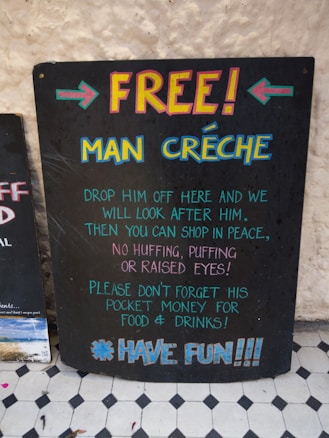 FREE!
MAN CRÉCHE
DROP HIM OFF HERE AND WE
WILL LOOK AFTER HIM.
THEN YOU CAN SHOP IN PEACE,
NO HUFFING, PUFFING
OR RAISED EYES!
PLEASE DON'T FORGET HIS
POCKET MONEY FOR
FOOD & DRINKS!
* HAVE FUN!!!